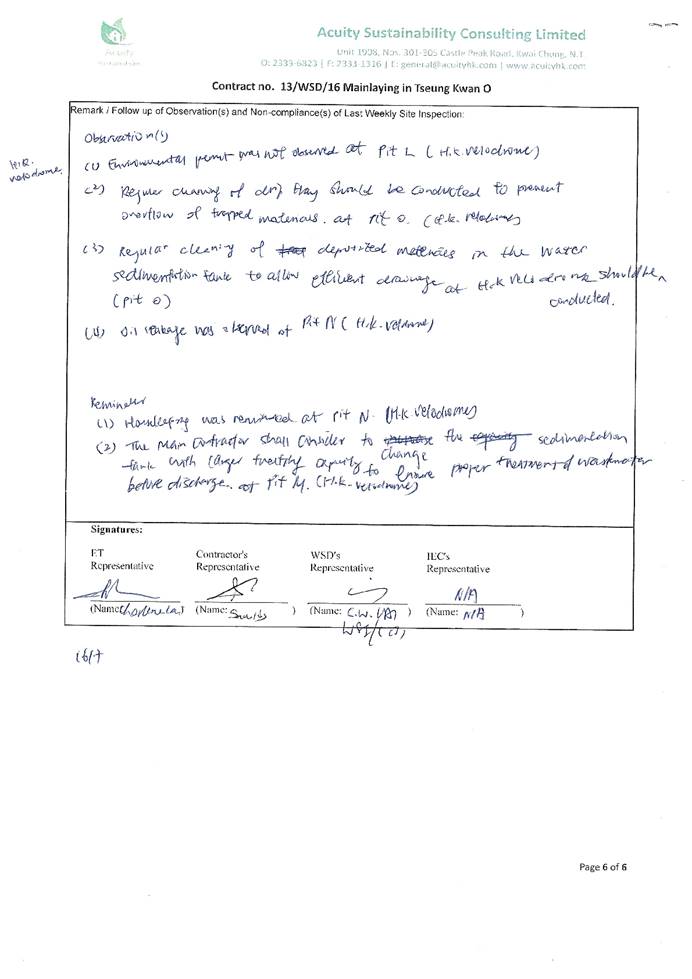 Acuity Sustainability Consulting Limited
Acuity
Unit 1908, Nos. 301-305 Castle Peak Road, Kwai Chung, N.T.
O: 2333-6823 | F: 2333-1316 | E: general@acuityhk.com | www.acuityhk.com
Contract no. 13/WSD/16 Mainlaying in Tseung Kwan O
Remark / Follow up of Observation(s) and Non-compliance(s) of Last Weekly Site Inspection:
H.K. velodrome
Observation(s)
(1) Environmental permit was not observed at Pit L (H.K. velodrome)
(2) Regular cleaning of drip tray should be conducted to prevent
overflow of trapped materials. at Pit O. (H.K. velodrome)
(3) Regular cleaning of deposited materials in the water
sedimentation tank to allow efficient drainage at H.K velodrome should be
(Pit O) conducted.
(4) Oil leakage was observed at Pit N (H.K. velodrome)
Reminder
(1) Housekeeping was reminded at Pit N. (H.K. velodrome)
(2) The Main Contractor shall consider to change the sedimentation
tank with larger treating capacity to ensure proper treatment of wastewater
before discharge. at Pit M. (H.K. velodrome)
Signatures:
ET Representative
Contractor's Representative
WSD's Representative
IEC's Representative
N/A
(Name: )
(Name: )
(Name: C.W. )
(Name: N/A )
16/7
Page 6 of 6